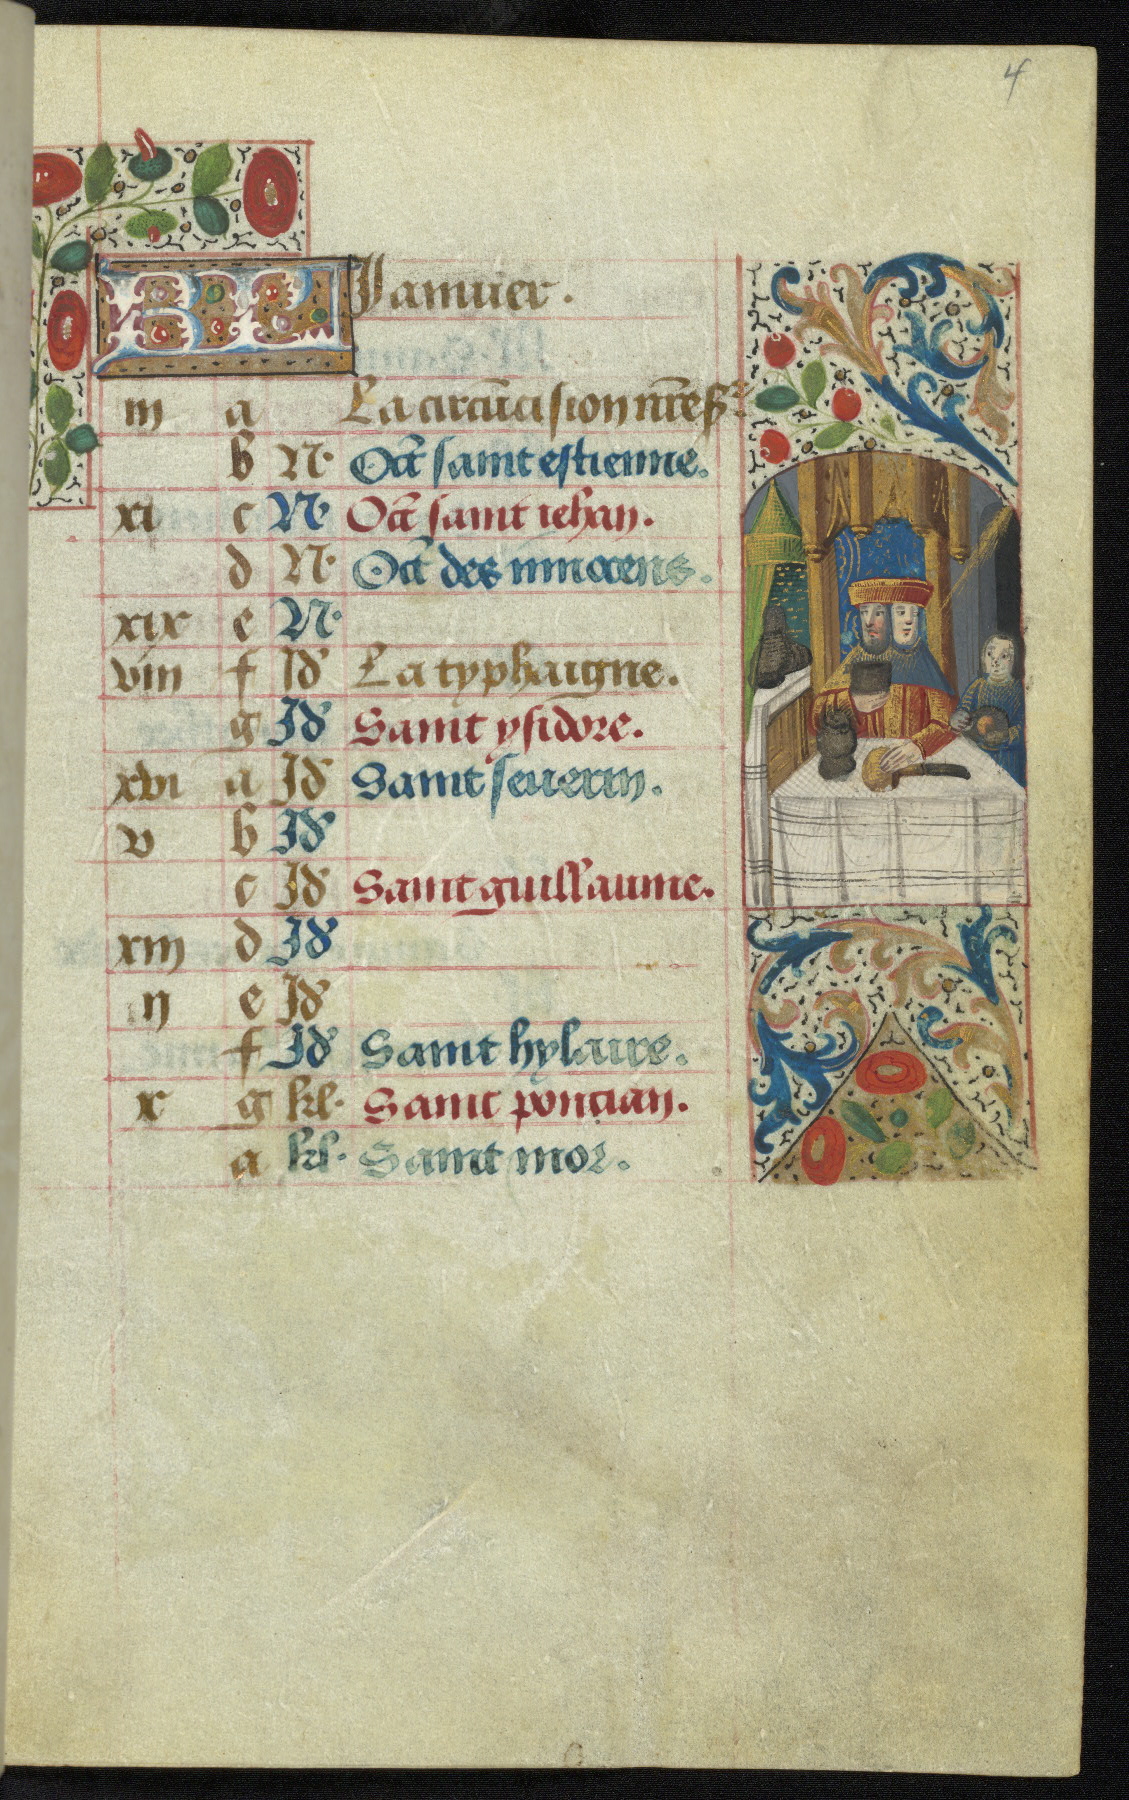 4
KL Januier.
iii a La circũcision nr̃e sr̃
b N. Oct̃ saint estienne.
xi c N. Oct̃ saint iehan.
d N. Oct̃ des innocens.
xix e N.
viii f Id La typhaigne.
g Id Saint ysidore.
xvi a Id Saint seuerin.
v b Id
c Id Saint guillaume.
xiii d Id
ii e Id
f Id Saint hylaire.
x g kl. Saint poncian.
a kl. Saint mor.